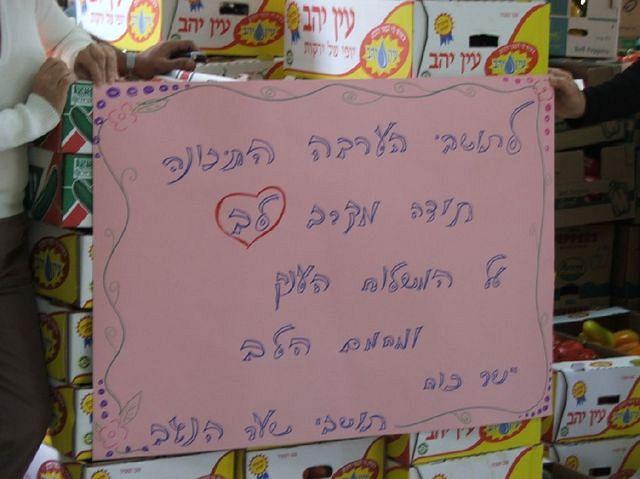 עין יהב
עין יהב
יופי של ירקות
עין יהב
לתושבי הערבה התיכונה
תודה מקרב לב
על המשלוח הענק
ומחמם הלב
יישר כוח
תושבי שער הנגב
עין יהב
עין יהב